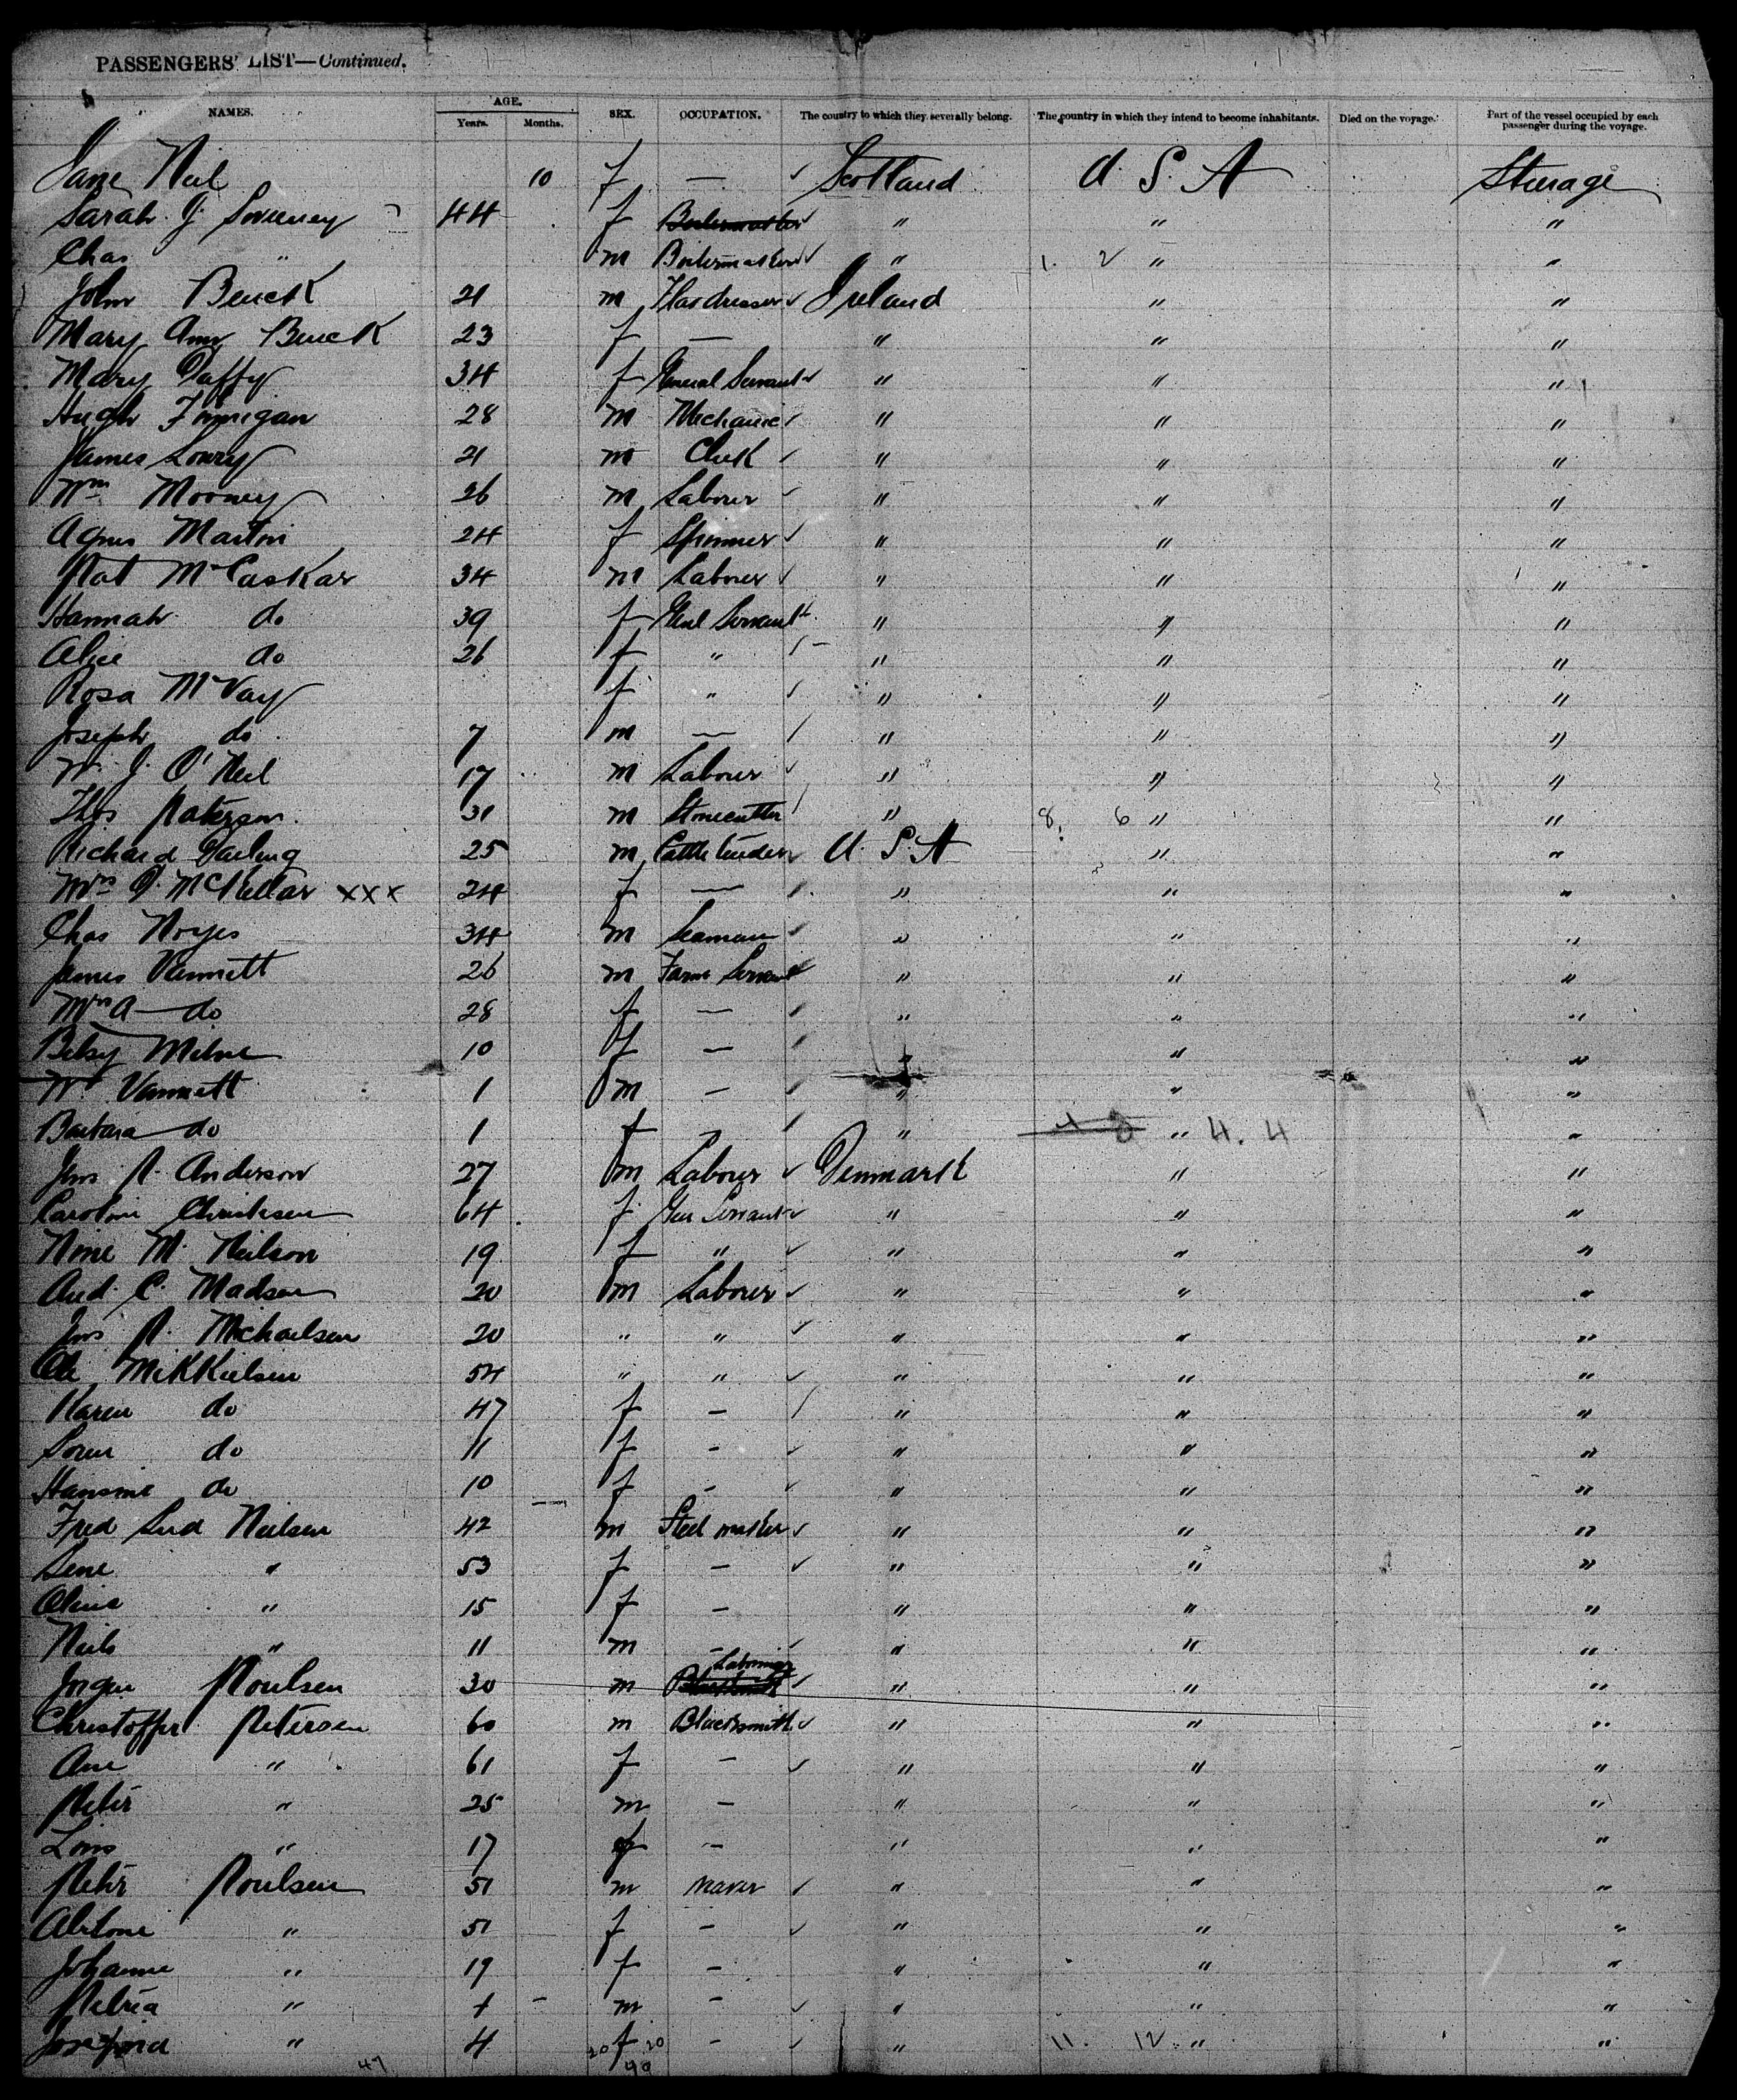 PASSENGERS' LIST—Continued.
NAMES. AGE. Years. Months. SEX. OCCUPATION. The country to which they severally belong. The country in which they intend to become inhabitants. Died on the voyage. Part of the vessel occupied by each passenger during the voyage.
Jane Neil 10 f — ✓ Scotland U. S. A Steerage
Sarah J. Sweeney 44 f Boilermaker ✓ " " "
Chas " m Boilermaker ✓ " 1. 2 " "
John Beuck 21 m Hairdresser ✓ Ireland " "
Mary Ann Beuck 23 f — " " "
Mary Daffy 34 f General Servant ✓ " " "
Hugh Finnigan 28 m Mechanic ✓ " " "
James Lowry 21 m Clerk ✓ " " "
Wm Mooney 26 m Laborer ✓ " " "
Agnes Martin 24 f Spinner ✓ " " "
Pat McCaskar 34 m Labourer ✓ " " "
Hannah do 39 f Genl Servant " " "
Alice do 26 f " " " "
Rosa McVay f " ✓ " " "
Joseph do 7 m — " " "
W. J. O'Neil 17 m Labourer ✓ " " "
Thos Paterson 31 m Stonecutter " 8. 6 " "
Richard Darling 25 m Cattle tender ✓ U. S. A " "
Mrs D. McKellar xxx 24 f — " " "
Chas Noyes 34 m Seaman ✓ " " "
James Vannett 26 m Farm Servant ✓ " " "
Mrs A — do 28 f — " " "
Betsy Milne 10 f — " " "
Wm Vannett 1 m — " " "
Barbara do 1 f — " " 4. 4 "
Jens P. Anderson 27 m Labourer ✓ Denmark " "
Caroline Christesen 64 f Gen Servant ✓ " " "
Nine M. Neilson 19 f " ✓ " " "
And. C. Madsen 20 m Laborer ✓ " " "
Jens P. Michaelsen 20 " " ✓ " " "
Ole Mikkielsen 54 " " ✓ " " "
Karen do 47 f — " " "
Soren do 11 f — ✓ " " "
Hansine do 10 f — ✓ " " "
Fred Lud Neilsen 42 m Steel maker ✓ " " "
Sene " 53 f — ✓ " " "
Oline " 15 f — " " "
Neils " 11 m — " " "
Laboring
Jorgen Poulsen 30 m Blacksmith ✓ " " "
Christoffer Petersen 60 m Blacksmith ✓ " " "
Ane " 61 f — ✓ " " "
Peter " 25 m — " " "
" 17 f — " " "
Peter Poulsen 51 m ✓ " " "
" 51 f — ✓ " " "
Johanne " 19 f — " " "
Petrea " m — ✓ " " "
" 4 20 f 20 — ✓ " 11. 12 " "
47 40